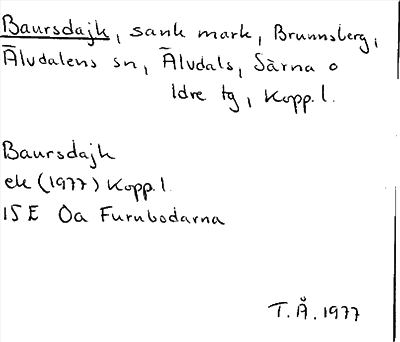 Baursdajk, sank mark, Brunnsberg,
Älvdalens sn, Älvdals, Särna o
Idre tg, Kopp. l.
Baursdajk
ek (1977) Kopp. l.
15 E Oa Furubodarna
T. Å. 1977